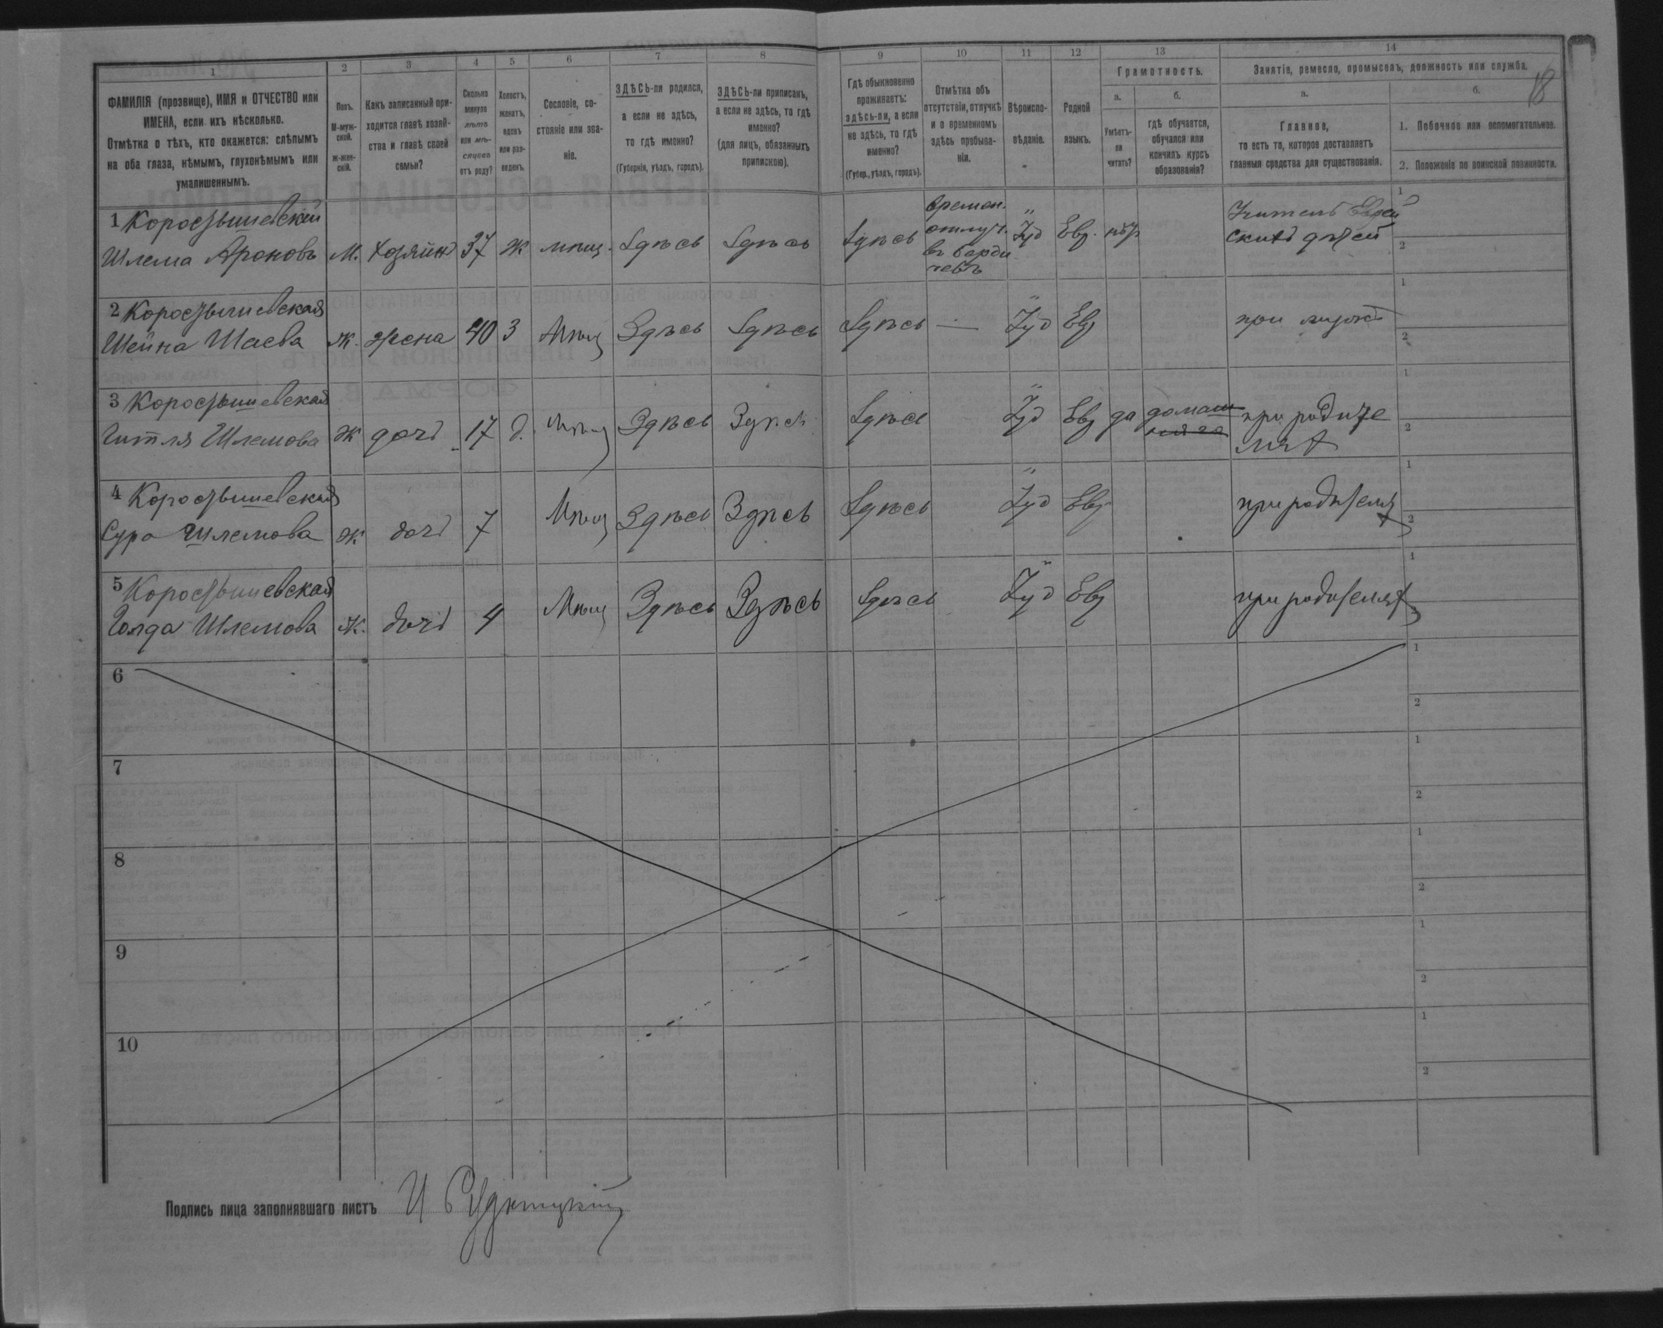 1 2 3 4 5 6 7 8 9 10 11 12 13 14
18
ФАМИЛІЯ (прозвище), ИМЯ и ОТЧЕСТВО или ИМЕНА, если ихъ нѣсколько.
Отмѣтка о тѣхъ, кто окажется: слѣпымъ на оба глаза, нѣмымъ, глухонѣмымъ или умалишеннымъ.
Полъ.
М-муж-
ской.
ж-жен-
скій.
Какъ записанный при-
ходится главѣ хозяй-
ства и главѣ своей
семьи?
Сколько
минуло
лѣтъ
или мѣ-
сяцевъ
отъ роду?
Холостъ,
женатъ,
вдовъ
или раз-
веденъ.
Сословіе, со-
стояніе или зва-
ніе.
ЗДѢСЬ-ли родился,
а если не здѣсь,
то гдѣ именно?
(Губернія, уѣздъ, городъ).
ЗДѢСЬ-ли приписанъ,
а если не здѣсь, то гдѣ
именно?
(для лицъ, обязанныхъ
припискою).
Гдѣ обыкновенно
проживаетъ:
здѣсь-ли, а если
не здѣсь, то гдѣ
именно?
(Губер., уѣздъ, городъ).
Отмѣтка объ
отсутствіи, отлучкѣ
и о временномъ
здѣсь пребыва-
ніи.
Вѣроиспо-
вѣданіе.
Родной
языкъ.
Грамотность.
а.
Умѣетъ-
ли
читать?
б.
гдѣ обучается,
обучался или
кончилъ курсъ
образованія?
Занятіе, ремесло, промыселъ, должность или служба.
а.
Главное,
то есть то, которое доставляетъ
главныя средства для существованія.
б.
1. Побочное или вспомогательное.
2. Положеніе по воинской повинности.
1 Коростышевскій
Шлема Ароновъ М. хозяинъ 37 ж мѣщ. Здѣсь Здѣсь Здѣсь времен. отлуч. въ Берди чевъ Іуд Евр. нѣтъ Учитель Еврей скихъ дѣтей 1 2
2 Коростышевская
Шейна Шаева ж. жена 40 З Мѣщ Здѣсь Здѣсь Здѣсь — Іуд Евр при мужѣ 1 2
3 Коростышевская
Гитля Шлемова ж дочь 17 д. Мѣщ Здѣсь Здѣсь Здѣсь Іуд Евр да домаш при родите
ляхъ 1 2
4 Коростышевская
Сура Шлемова ж дочь 7 Мѣщ Здѣсь Здѣсь Здѣсь Іуд Евр при родителяхъ 1 2
5 Коростышевская
Голда Шлемова ж. дочь 4 Мѣщ Здѣсь Здѣсь Здѣсь Іуд Евр при родителяхъ 1 2
6 1 2
7 1 2
8 1 2
9 1 2
10 1 2
Подпись лица заполнявшаго листъ